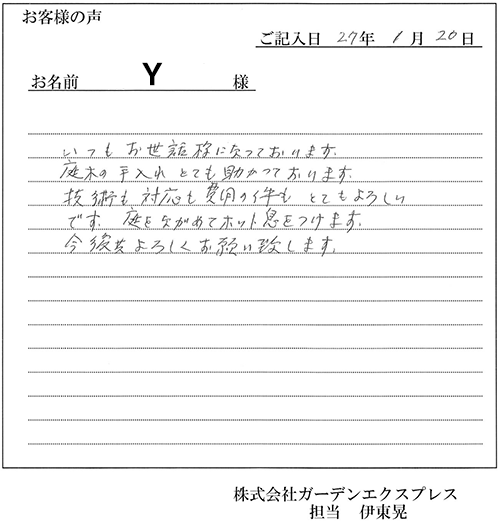 お客様の声
ご記入日 27年 1月 20日
お名前 Y 様
いつもお世話様になっております。
庭木の手入れとても助かっております。
技術も対応も費用の件もとてもよろしい
です。庭をながめてホット息をつけます。
今後共よろしくお願い致します。
株式会社ガーデンエクスプレス
担当 伊東晃